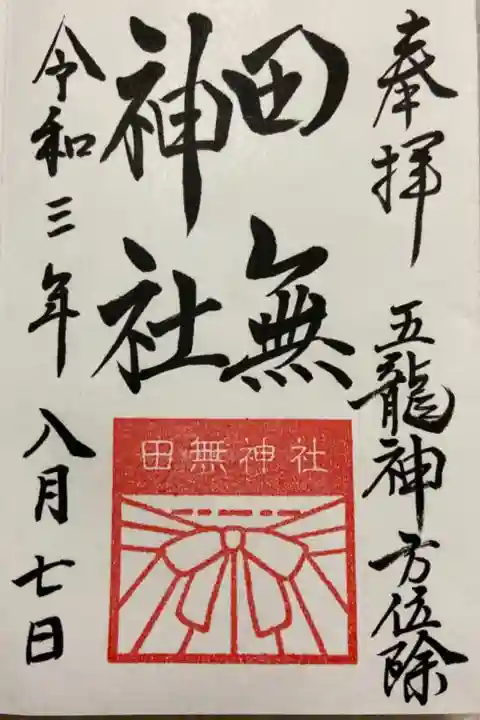 奉拝
五龍神方位除
田無
神社
田無神社
令和三年八月七日